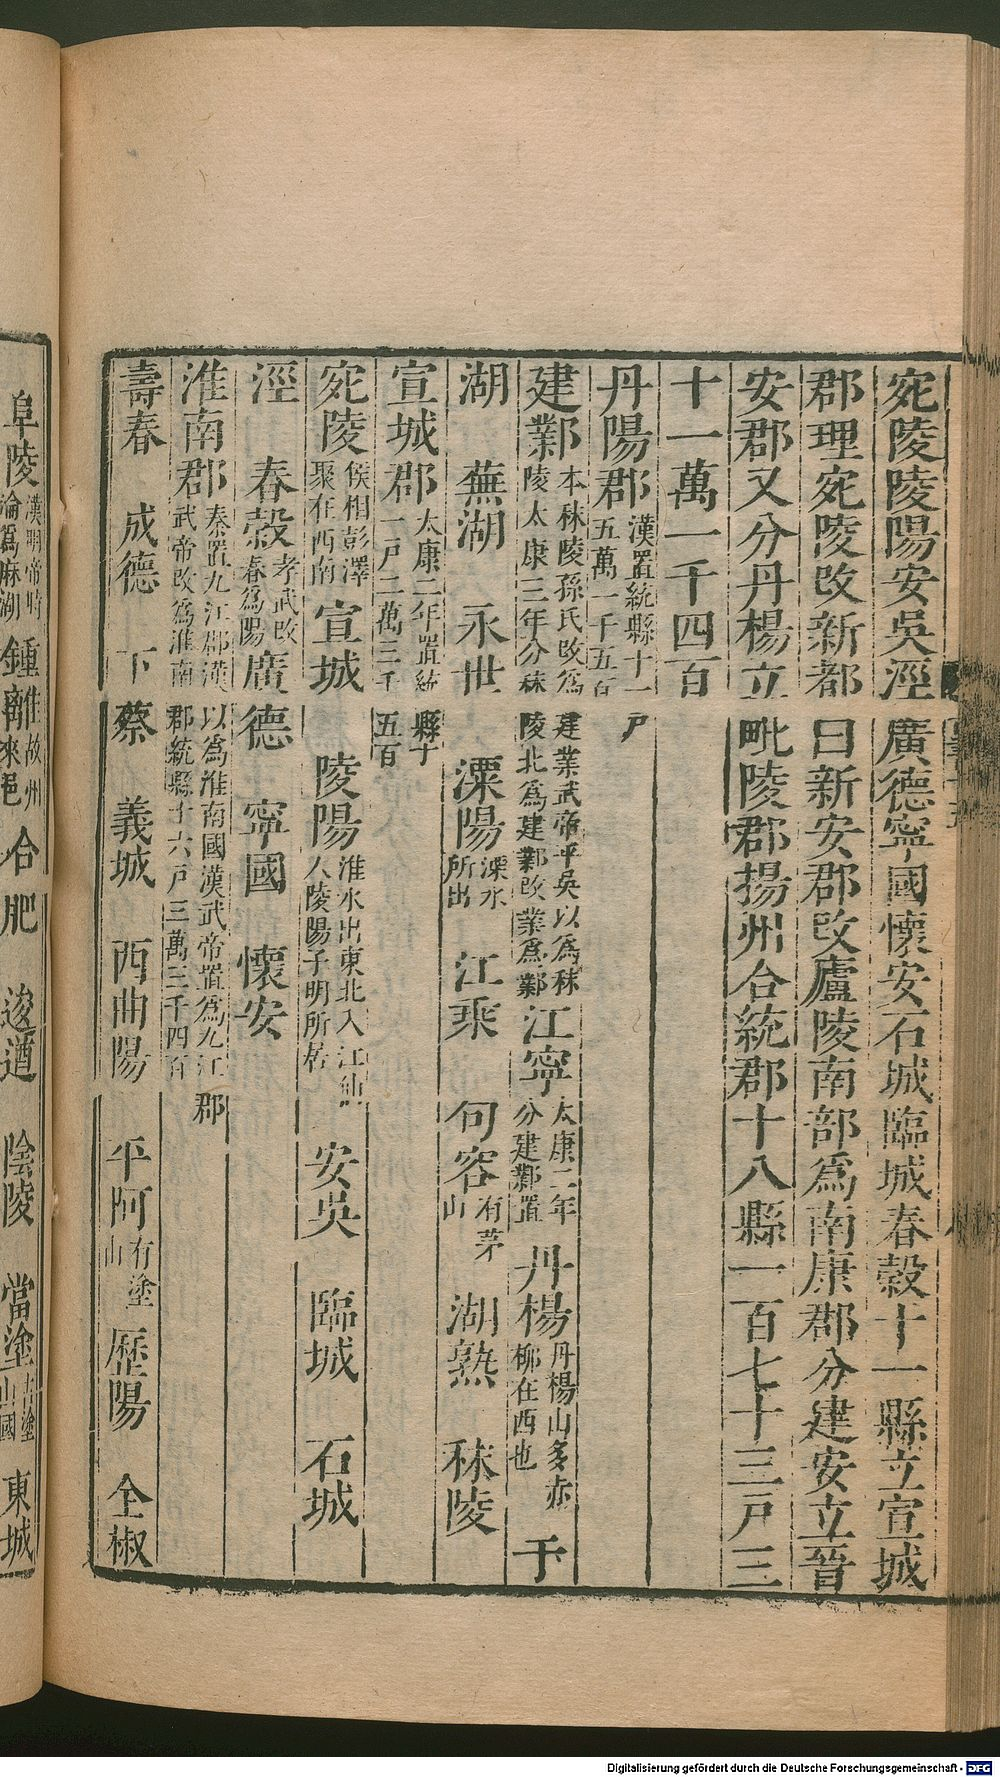 宛陵陵陽安吳涇廣德寧國懷安石城臨城春穀十一縣立宣城
郡理宛陵改新都曰新安郡改廬陵南部為南康郡分建安立晉
安郡又分丹楊立毗陵郡揚州合統郡十八縣一百七十三戶三
十一萬一千四百
丹陽郡漢置統縣十一戶五萬一千五百
建鄴本秣陵孫氏改為建業武帝平吳以為秣陵太康三年分秣陵北為建鄴改業為鄴 江寧太康二年分建鄴置 丹楊丹楊山多赤柳在西也 于
湖 蕪湖 永世 溧陽溧水所出 江乘 句容有茅山 湖熟 秣陵
宣城郡太康二年置統縣十一戶二萬三千五百
宛陵侯相彭澤聚在西南 宣城 陵陽淮水出東北入江仙人陵陽子明所居 安吳 臨城 石城
涇 春穀孝武改春為陽 廣德 寧國 懷安
淮南郡秦置九江郡漢以為淮南國漢武帝置為九江郡武帝改為淮南郡統縣十六戶三萬三千四百
壽春 成德 下蔡 義城 西曲陽 平阿有塗山 歷陽 全椒
阜陵漢明帝時淪為麻湖 鍾離故州來邑 合肥 逡遒 陰陵 當塗古塗山國 東城
Digitalisierung gefördert durch die Deutsche Forschungsgemeinschaft - DFG